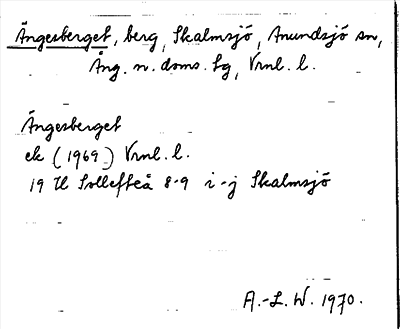 Ängesberget, berg, Skalmsjö, Anundsjö sn,
Ång. n. doms. lg, Vrnl. l.
Ängesberget
ek (1969) Vrnl. l.
19 H Sollefteå 8-9 i-j Skalmsjö
A.-L. W. 1970.